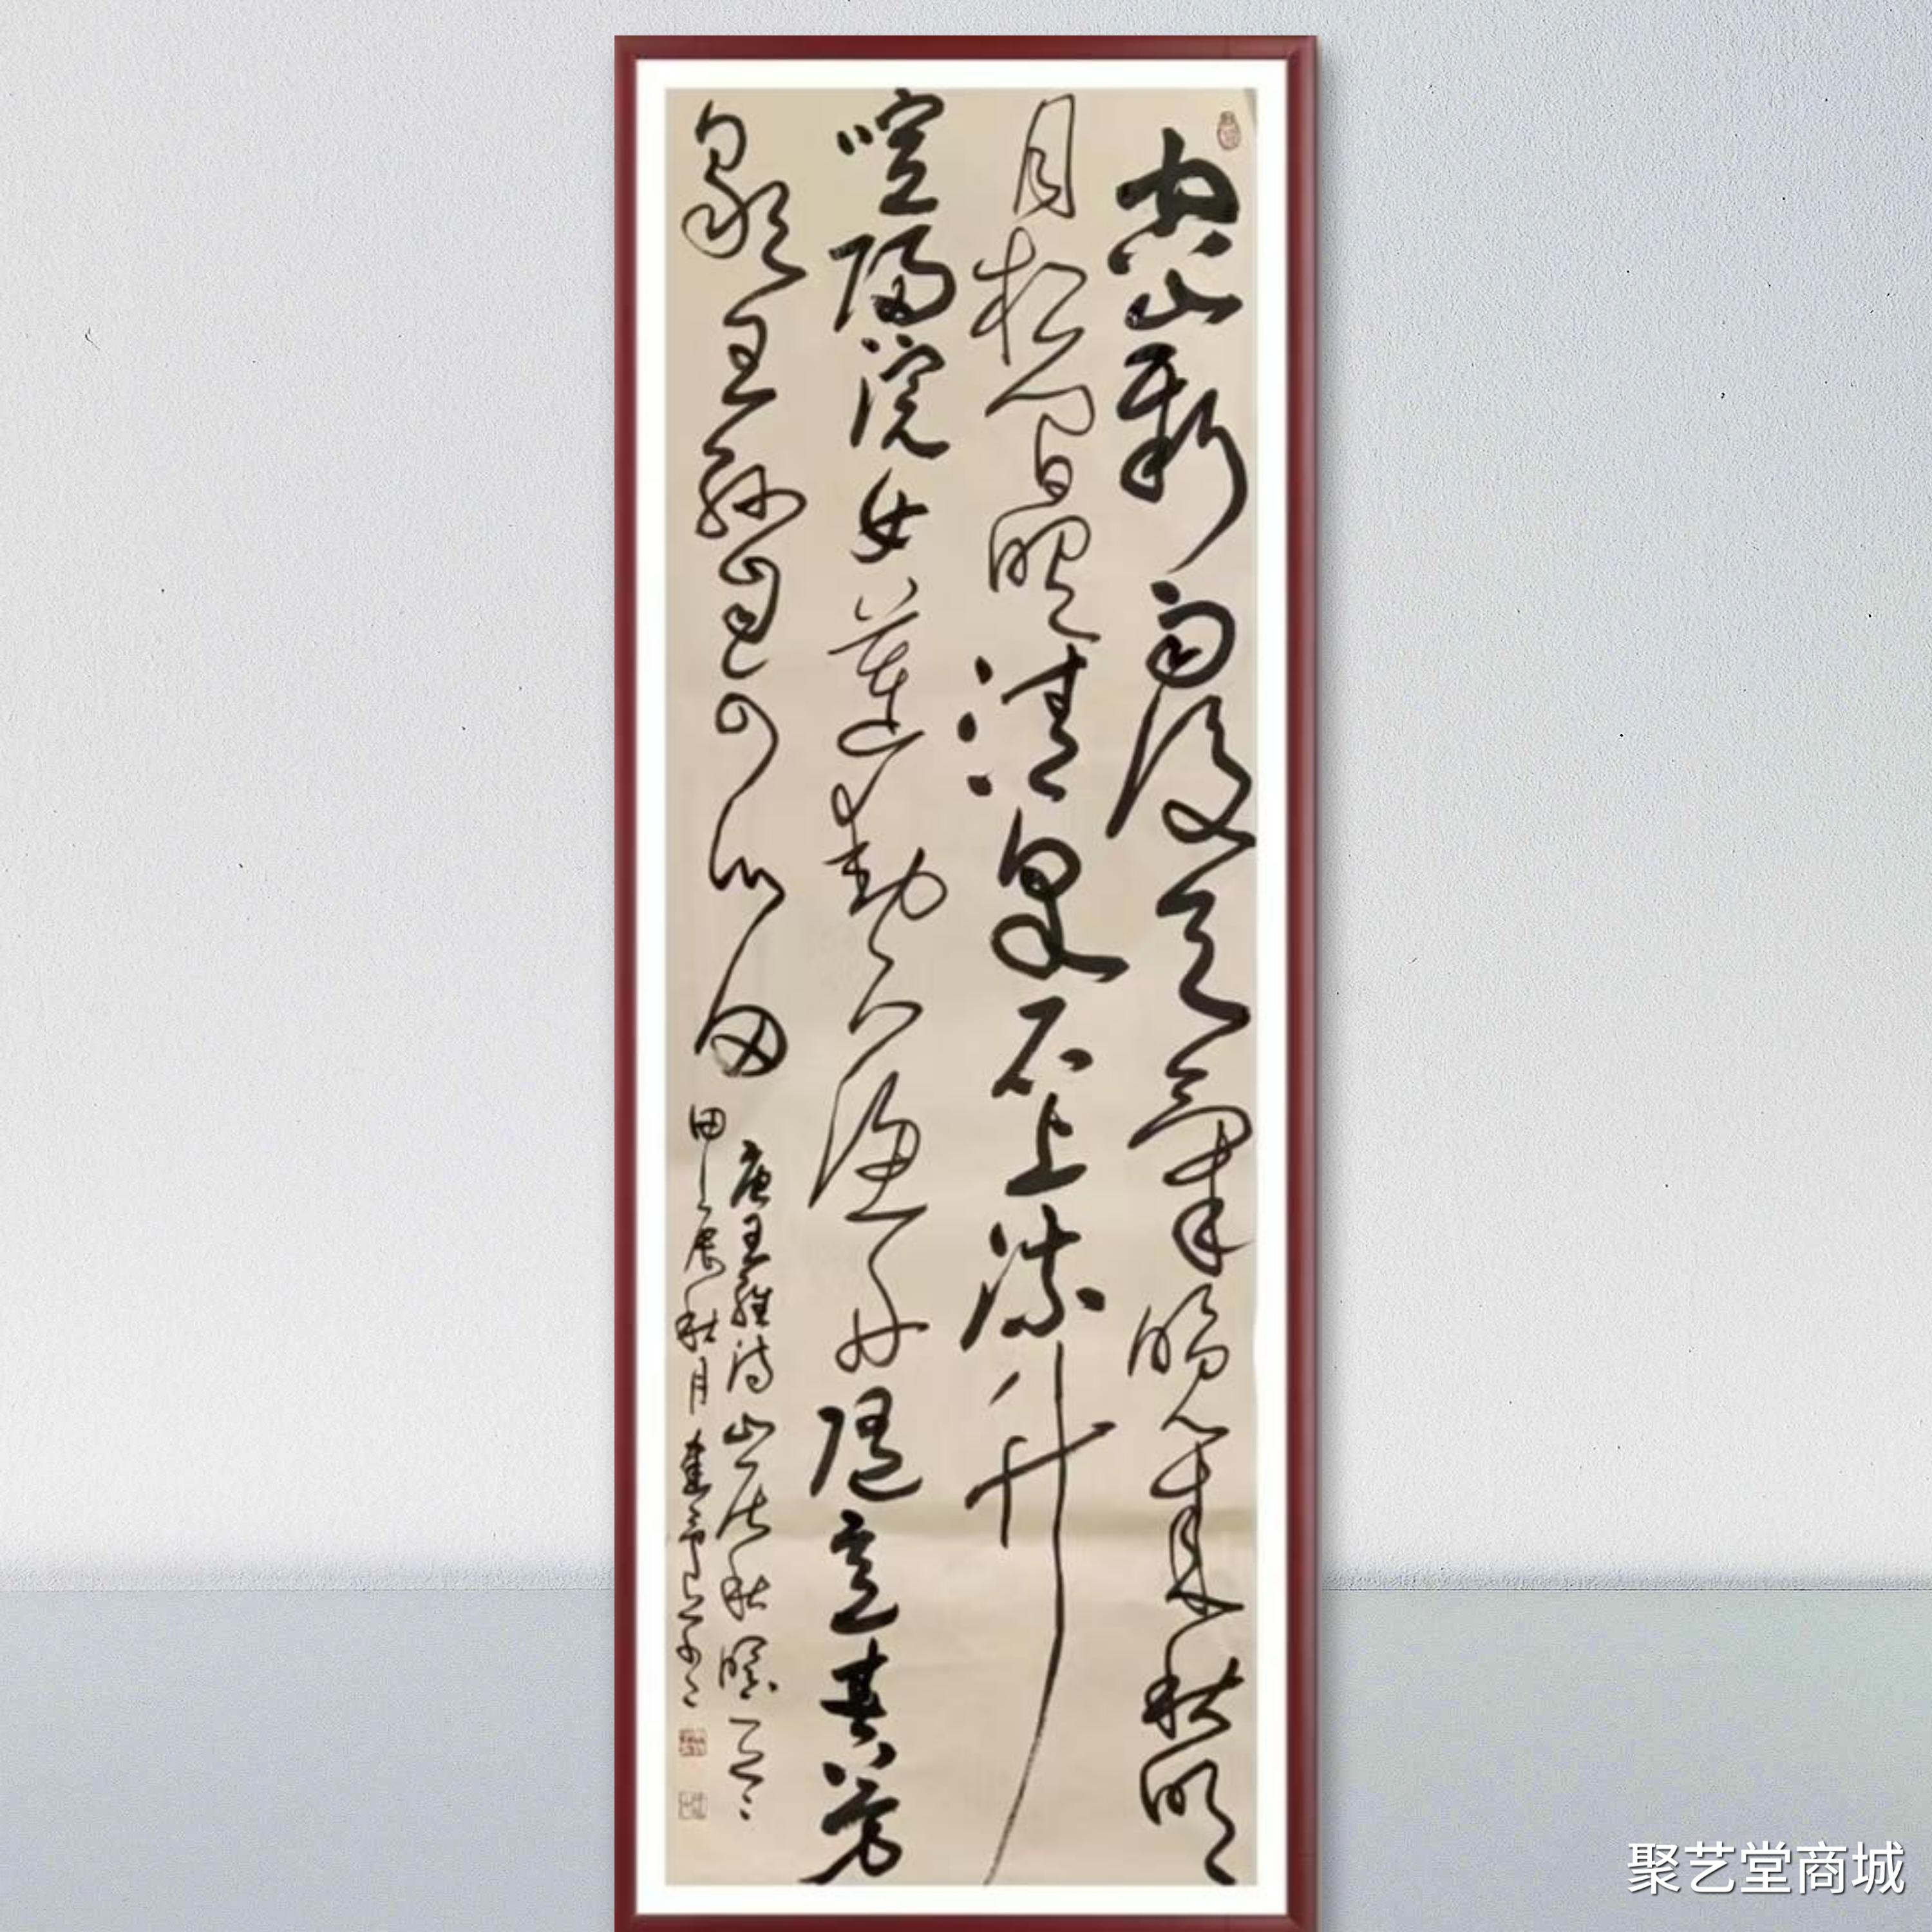 空山新雨後天氣晚来秋明
月松间照清泉石上流竹
喧歸浣女蓮動下渔舟随意春芳
歇王孙自可留
唐王維诗山居秋暝
甲辰秋月
聚艺堂商城